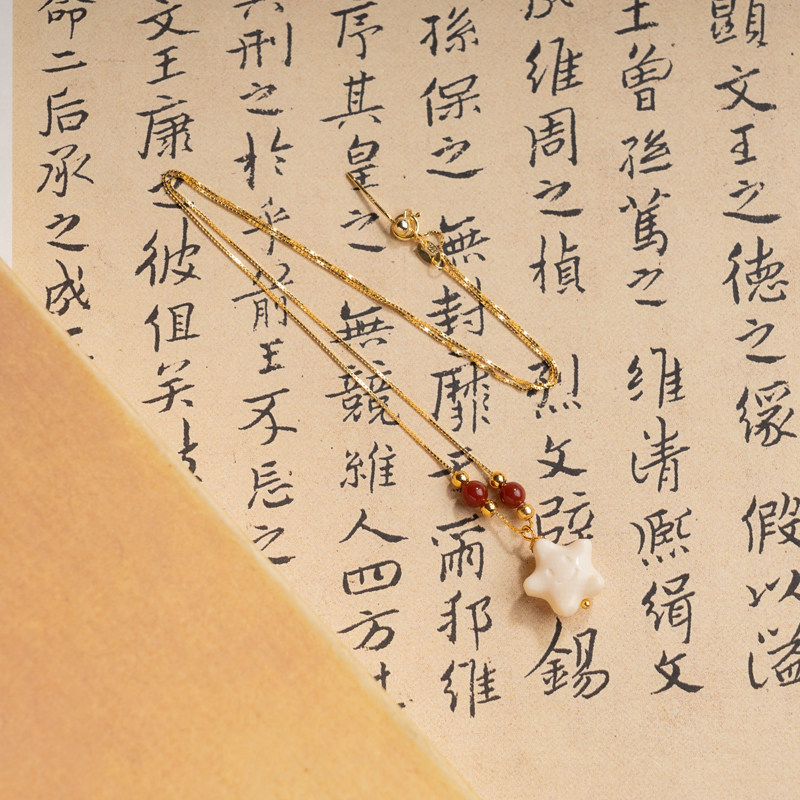 顯文王之德之 假以溢
王曾孫篤之 維清熙緝文
維周之楨 烈文辟 錫
孫保之 無封靡于爾邦維
序其皇之 無競維人四方
刑之於乎前王不忘之
文王康之彼徂矣
命二后承之成